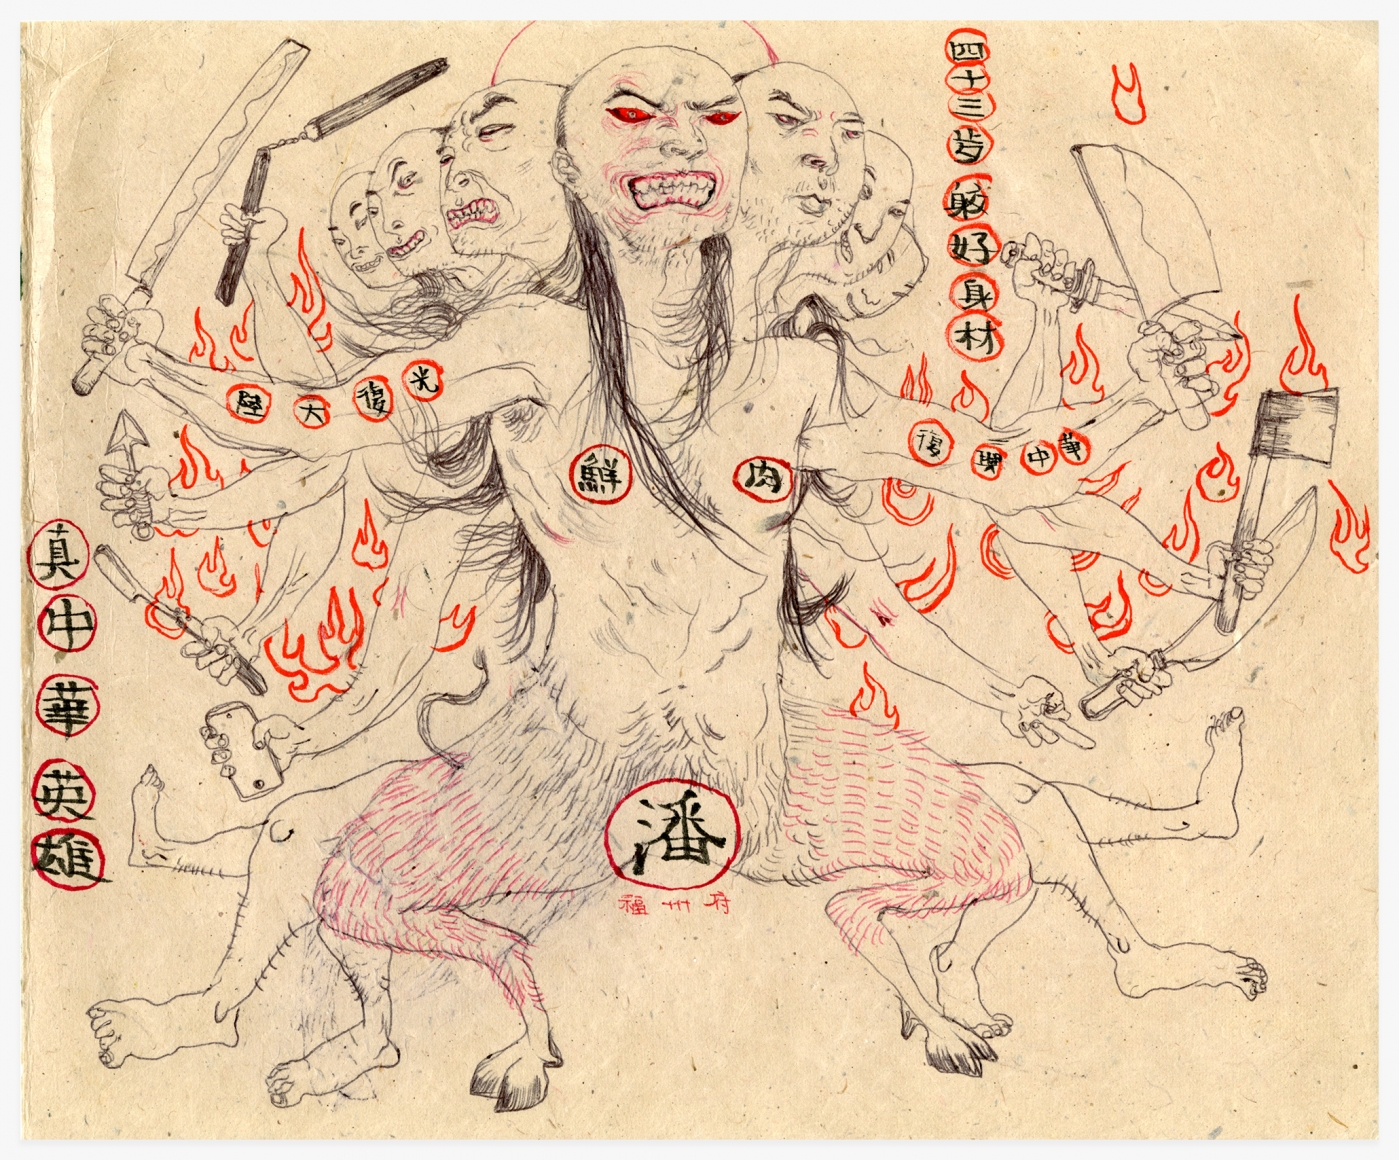 四十三歩
好身材
陸大復光
復興中華
鮮肉
真中華英雄
潘
福州府